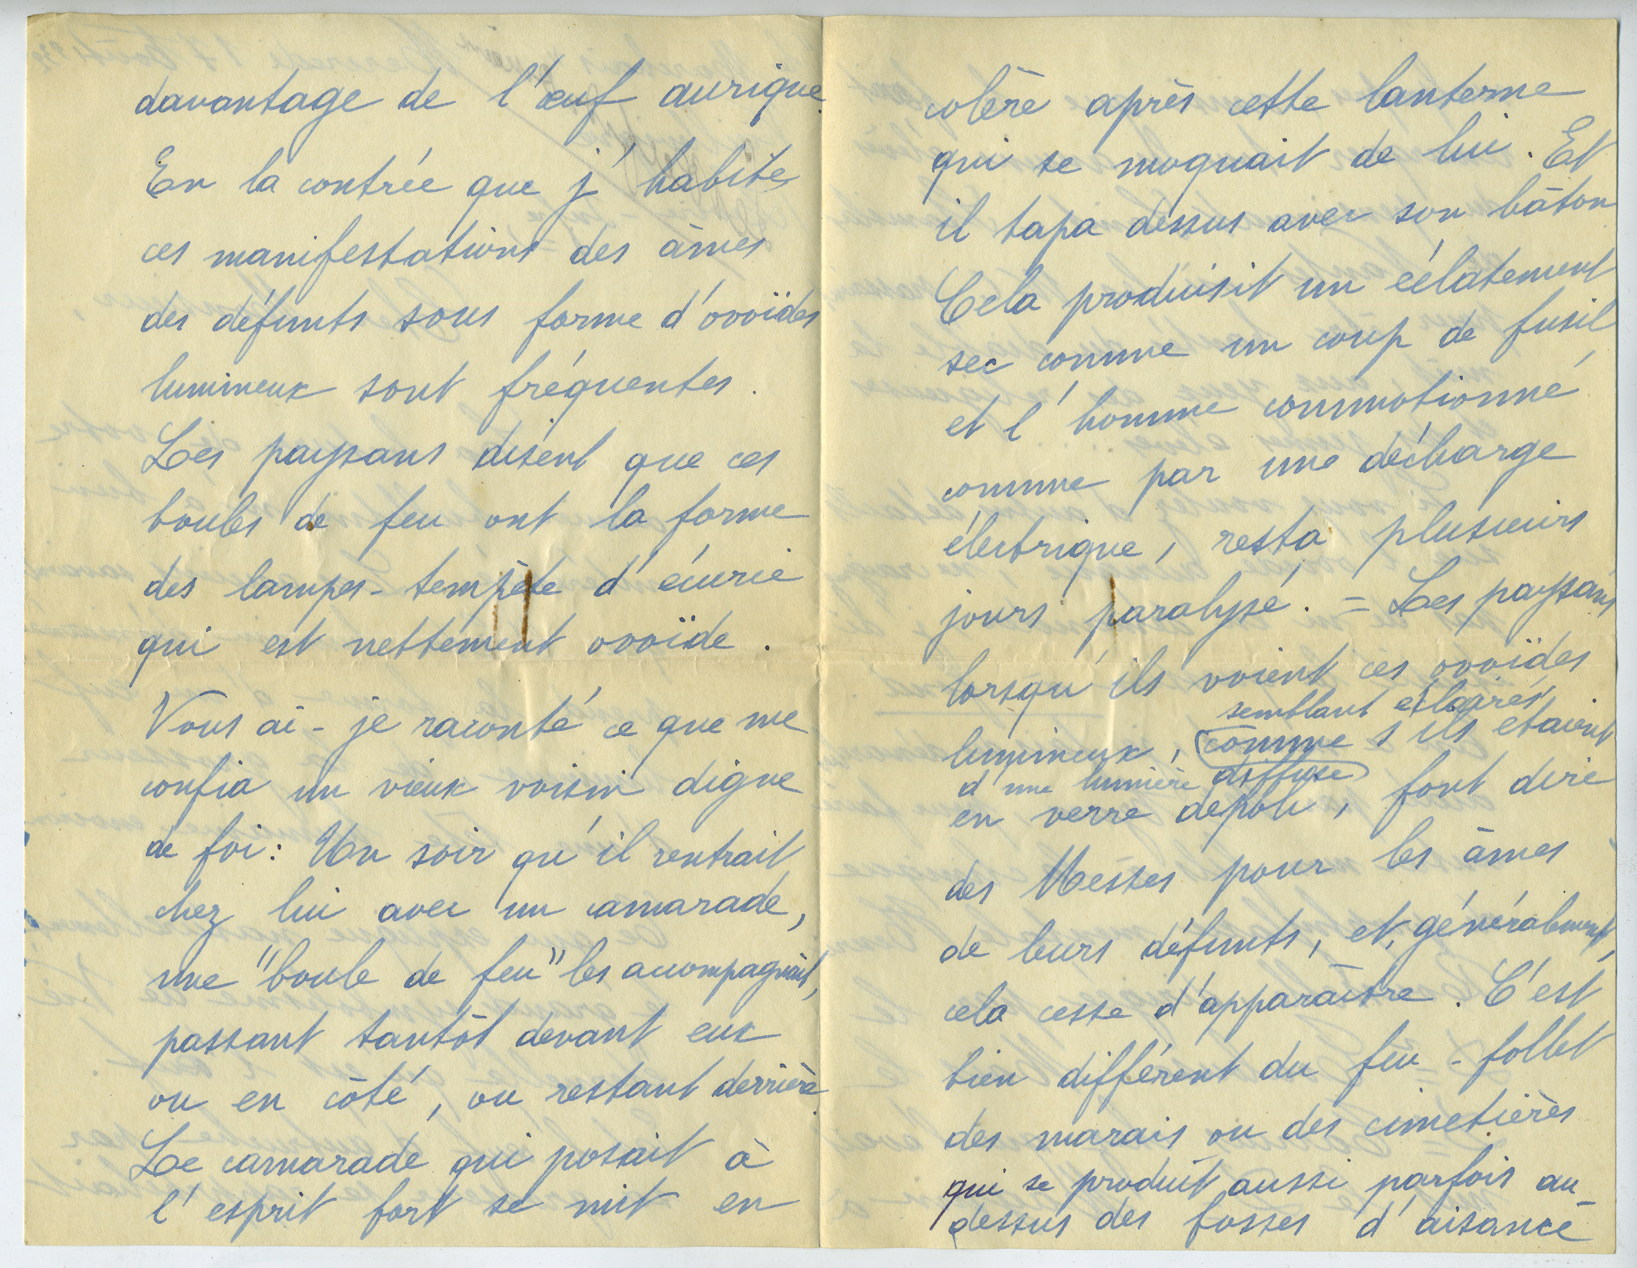 davantage de l'œuf aurique.
En la contrée que j'habite
ces manifestations des âmes
des défunts sous forme d'ovoïdes
lumineux sont fréquentes.
Les paysans disent que ces
boules de feu ont la forme
des lampes-tempête d'écurie
qui est nettement ovoïde.
Vous ai-je raconté ce que me
confia un vieux voisin digne
de foi: Un soir qu'il rentrait
chez lui avec un camarade,
une "boule de feu" les accompagnait,
passant tantôt devant eux
ou en côté, ou restant derrière
Le camarade qui posait à
l'esprit fort se mit en
colère après cette lanterne
qui se moquait de lui. Et
il tapa dessus avec son bâton
Cela produisit un éclatement
sec comme un coup de fusil
et l'homme commotionné
comme par une décharge
électrique, resta plusieurs
jours paralysé. = Les paysans
lorsqu'ils voient ces ovoïdes
semblant éclairés
lumineux, comme s'ils étaient
d'une lumière diffuse
en verre dépoli, font dire
des Messes pour les âmes
de leurs défunts, et, généralement,
cela cesse d'apparaître. C'est
bien différent du feu-follet
des marais ou des cimetières
qui se produit aussi parfois au-
dessus des fosses d'aisance